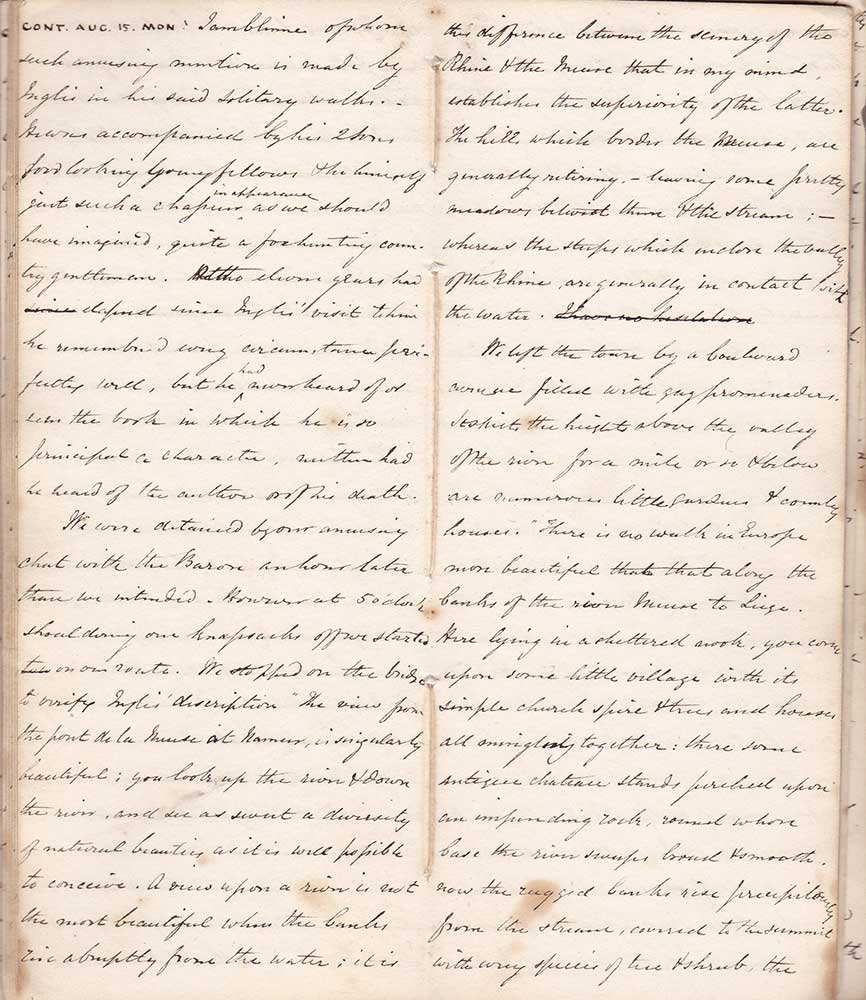 CONT. AUG. 15. MON: Jamblinne of whom
such amusing mention is made by
Inglis in his said Solitary walks. -
He was accompanied by his 2 sons
good looking young fellows & he himself
just such a chap in appearance, as we should
have imagin'd, quite a foxhunting coun-
try gentleman. Altho eleven years had
since elapsed since Inglis' visit to him
he remember'd every circumstance per-
fectly well, but he had never heard of or
seen the book in which he is so
principal a character, neither had
he heard of the author or of his death.
We were detained by our amusing
chat with the Baron an hour later
than we intended. However at 5 o'clock
shouldering our knapsacks off we started
on our route. We stopped on the bridge
to verify Inglis' description "The view from
the pont de la Meuse at Namur, is singularly
beautiful; you look up the river & down
the river, and see as sweet a diversity
of natural beauties as it is well possible
to conceive. A view upon a river is not
the most beautiful when the banks
rise abruptly from the water; it is
this difference between the scenery of the
Rhine & the Meuse that in my mind,
establishes the superiority of the latter.
The hills which border the Meuse, are
generally retiring, - leaving some pretty
meadows betwixt them & the stream; -
whereas the steeps which inclose the valley
of the Rhine, are generally in contact with
the water. I have no hesitation
We left the town by a boulevard
avenue filled with gay promenaders.
It skirts the heights above the valley
of the river for a mile or so & below
are numerous little gardens & country
houses. "There is no walk in Europe
more beautiful than that along the
banks of the river Meuse to Liège.
Here lying in a sheltered nook, you come
upon some little village with its
simple church spire & trees and houses
all mingling together: there some
antique chateau stands perched upon
an impending rock, round whose
base the river sweeps broad & smooth.
now the rugged banks rise precipitously
from the stream, covered to the summit
with every species of tree & shrub, the